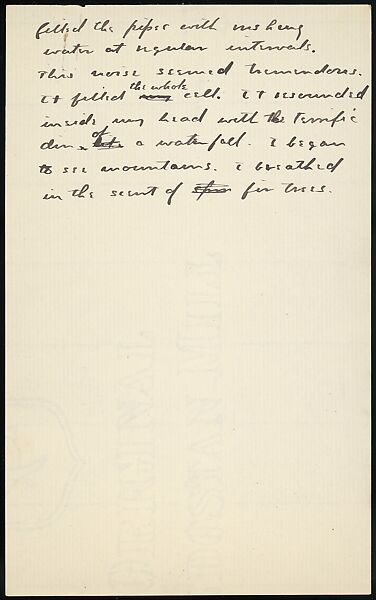 filled the pipes with rushing
water at regular intervals.
This noise seemed tremendous.
It filled my the whole cell. It resounded
inside my head with the terrific
din of a waterfall. I began
to see mountains. I breathed
in the scent of fir trees.